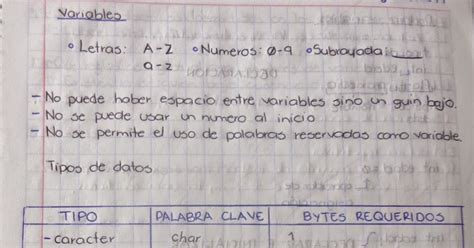 Variables
◦ Letras: A-Z ◦ Numeros: 0-9 ◦ Subrayada: __
a-z
- No puede haber espacio entre variables sino un guin bajo.
- No se puede usar un numero al inicio.
- No se permite el uso de palabras reservadas como variable
Tipos de datos.
TIPO PALABRA CLAVE BYTES REQUERIDOS
- caracter char 1